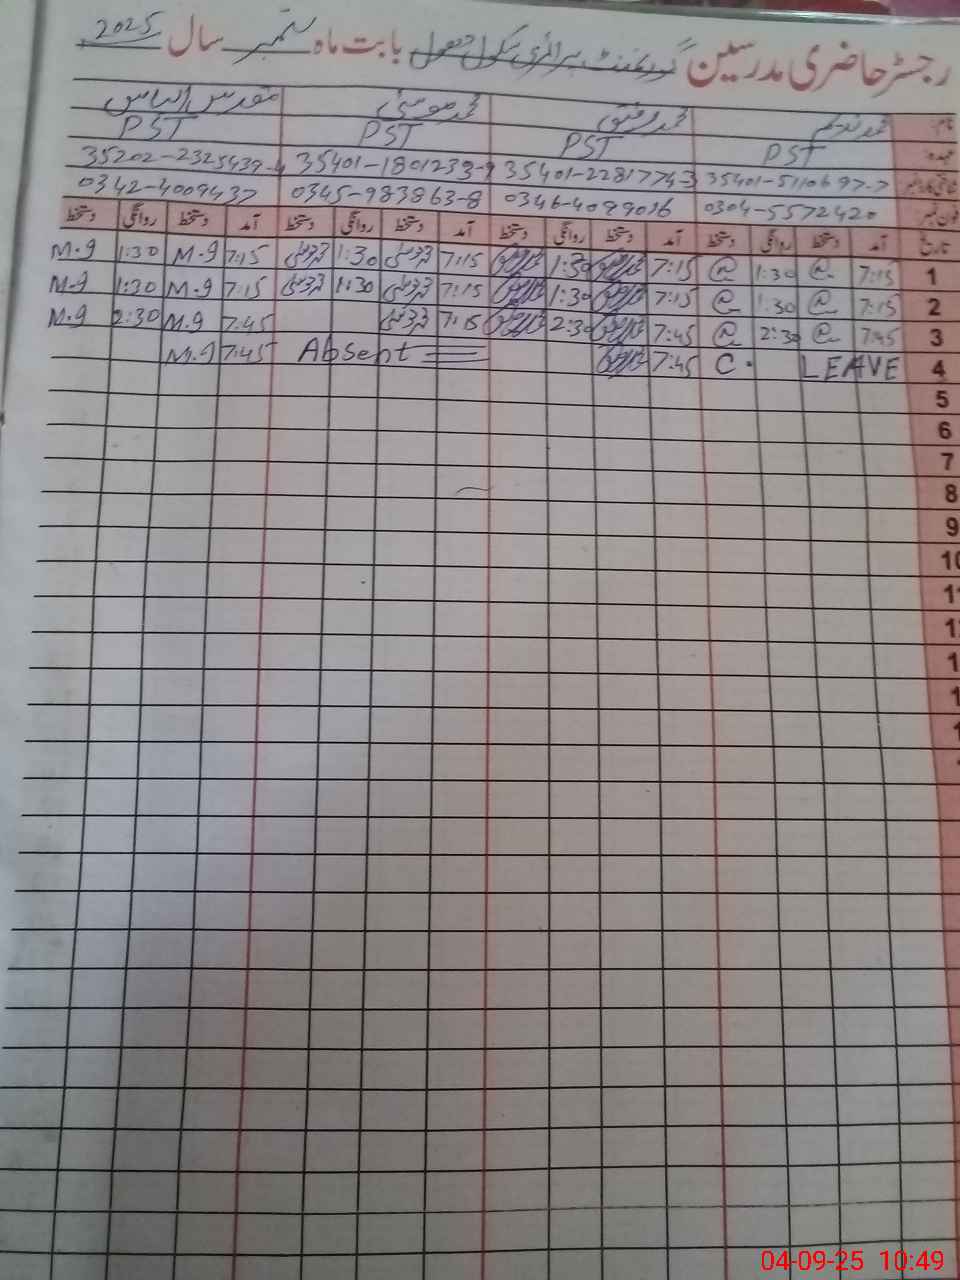 رجسٹر حاضری مدرسین گورنمنٹ پرائمری سکول بابت ماہ ستمبر سال 2025
نام: محمد ندیم محمد رفیق محمد موسیٰ مقدس الیاس
عہدہ: PST PST PST PST
35401-5110697-7 35401-2281774-3 35401-1801239-9 35202-2325439-4
فون نمبر 0304-5572420 0346-4099016 0345-983863-8 0342-4009437
تاریخ آمد دستخط روانگی دستخط آمد دستخط روانگی دستخط آمد دستخط روانگی دستخط آمد دستخط روانگی دستخط
1 7:15 1:30 7:15 1:30 7:15 1:30 7:15 M.9 1:30 M.9
2 7:15 1:30 7:15 1:30 7:15 1:30 7:15 M.9 1:30 M.9
3 7:45 2:30 7:45 2:30 7:15 7:45 M.9 2:30 M.9
4 C. LEAVE 7:45 Absent 7:45 M.9
5
6
7
8
9
10
04-09-25 10:49